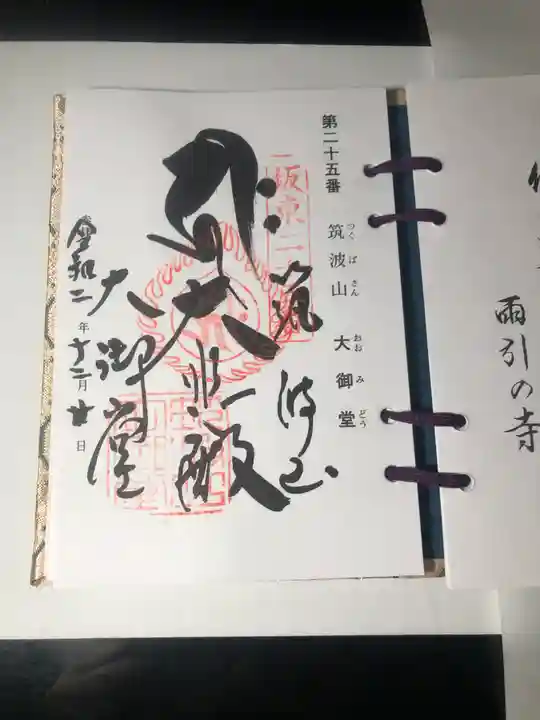 雨引の寺
第二十五番 筑波山 大御堂
つくばさん おおみどう
坂東二
筑波山
大悲殿
大御堂
令和二年十二月廿日